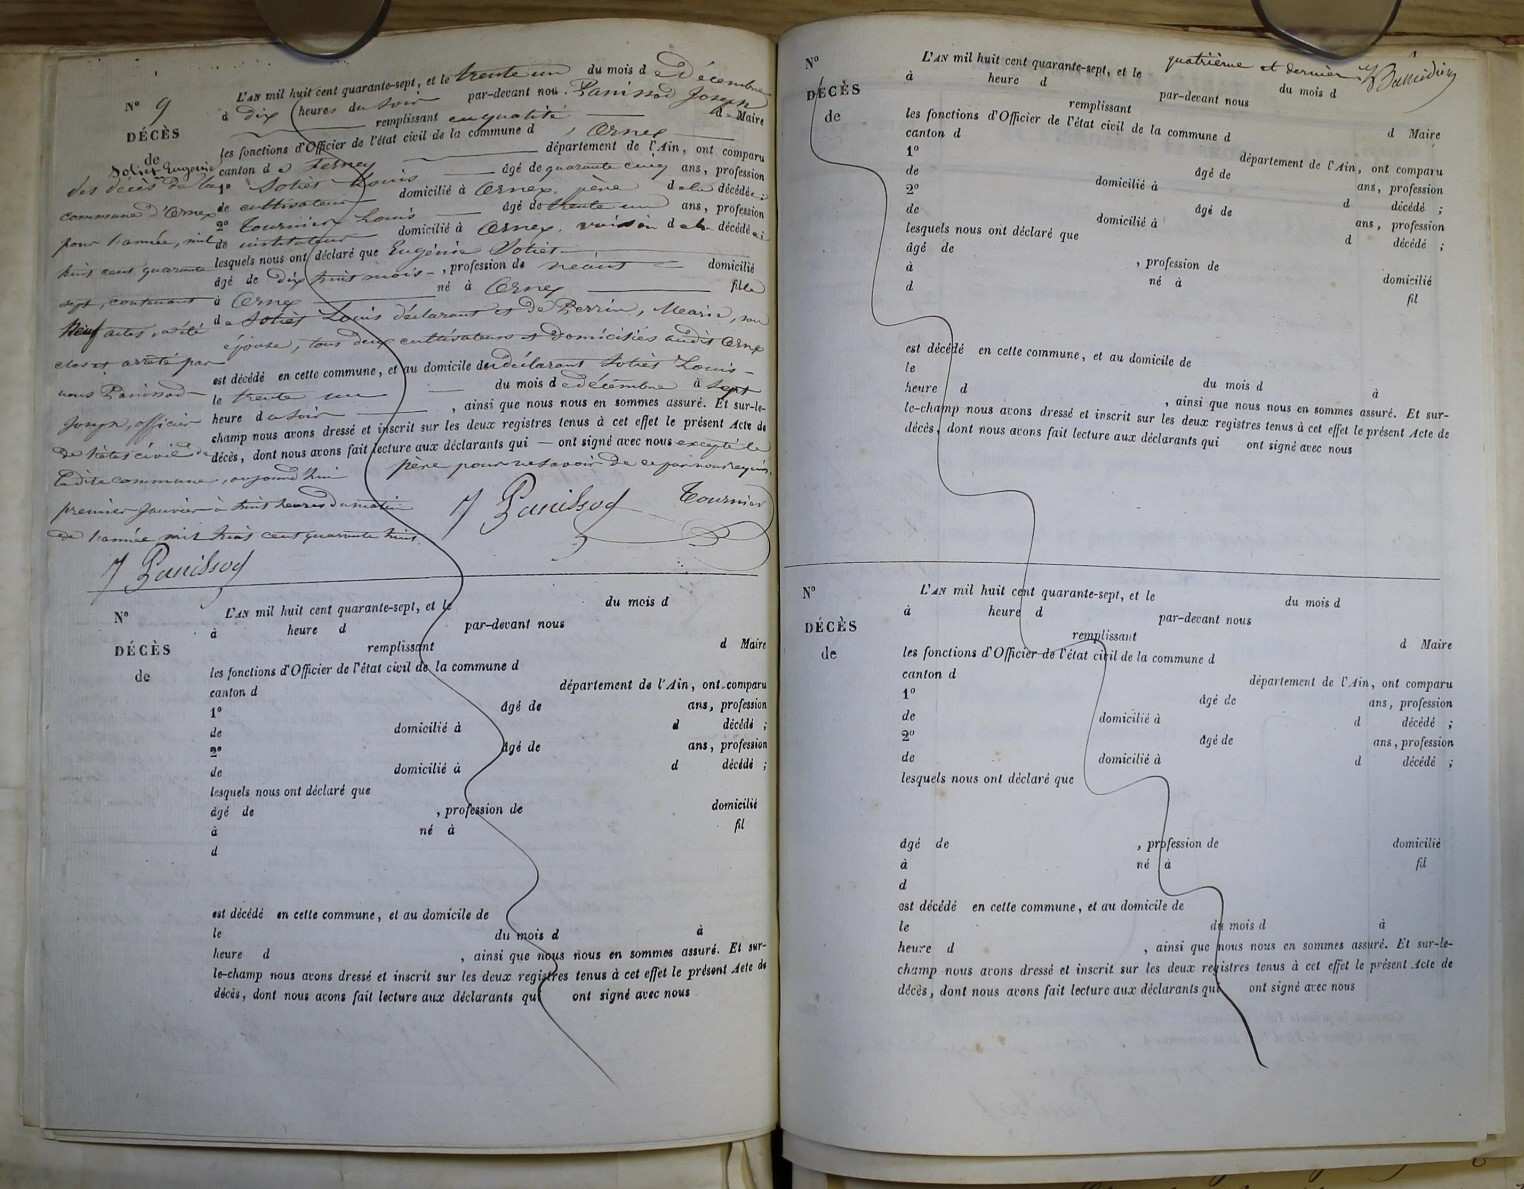 N° 9
DÉCÈS
de
Soliét Eugénie
L'AN mil huit cent quarante-sept, et le trente un du mois d e Décembre
à dix heures du soir par-devant nou. Panissod Joseph
remplissant en qualité d e Maire
les fonctions d'Officier de l'état civil de la commune d' Ornex
canton d e Ferney département de l'Ain, ont comparu
1° Soliét Louis âgé de quarante cinq ans, profession
de cultivateur domicilié à Ornex. père d e la décédée;
2° Tournier Louis âgé de trente un ans, profession
de instituteur domicilié à Ornex. voisin d e la décédée;
lesquels nous ont déclaré que Eugénie Soliét
âgé de dix huit mois, profession de néant domicilié
à Ornex né à Ornex fille
de Soliét Louis déclarant et de Perrin, Marie, son
épouse, tous deux cultivateurs et domiciliés audit Ornex
est décédé en cette commune, et au domicile de déclarant Soliét Louis
le trente un du mois d e décembre à sept
heure d u soir, ainsi que nous nous en sommes assuré. Et sur-le-
champ nous avons dressé et inscrit sur les deux registres tenus à cet effet le présent Acte de
décès, dont nous avons fait lecture aux déclarants qui ont signé avec nous excepté le
père pour ne savoir de ce par nous requis.
J Panissod Tournier
des décès de la
commune d'Ornex
pour l'année, mil
huit cent quarante
sept, contenant
Neuf actes, a été
clos et arrêté par
nous Panissod
Joseph, officier
de l'état civil de
la dite commune, aujourd'hui
premier Janvier à huit heures du matin
de l'année mil huit cent quarante huit.
J Panissod
N°
DÉCÈS
de
L'AN mil huit cent quarante-sept, et le du mois d
à heure d par-devant nous
remplissant d Maire
les fonctions d'Officier de l'état civil de la commune d
canton d département de l'Ain, ont comparu
1° âgé de ans, profession
de domicilié à d décédé ;
2° âgé de ans, profession
de domicilié à d décédé ;
lesquels nous ont déclaré que
âgé de , profession de domicilié
à né à fil
d
est décédé en cette commune, et au domicile de
le du mois d à
heure d , ainsi que nous nous en sommes assuré. Et sur-
le-champ nous avons dressé et inscrit sur les deux registres tenus à cet effet le présent Acte de
décès, dont nous avons fait lecture aux déclarants qui ont signé avec nous
quatrième et dernier
N°
DÉCÈS
de
L'AN mil huit cent quarante-sept, et le du mois d
à heure d par-devant nous
remplissant d Maire
les fonctions d'Officier de l'état civil de la commune d
canton d département de l'Ain, ont comparu
1° âgé de ans, profession
de domicilié à d décédé ;
2° âgé de ans, profession
de domicilié à d décédé ;
lesquels nous ont déclaré que
âgé de , profession de domicilié
à né à fil
d
est décédé en cette commune, et au domicile de
le du mois d à
heure d , ainsi que nous nous en sommes assuré. Et sur-
le-champ nous avons dressé et inscrit sur les deux registres tenus à cet effet le présent Acte de
décès, dont nous avons fait lecture aux déclarants qui ont signé avec nous
N°
DÉCÈS
de
L'AN mil huit cent quarante-sept, et le du mois d
à heure d par-devant nous
remplissant d Maire
les fonctions d'Officier de l'état civil de la commune d
canton d département de l'Ain, ont comparu
1° âgé de ans, profession
de domicilié à d décédé ;
2° âgé de ans, profession
de domicilié à d décédé ;
lesquels nous ont déclaré que
âgé de , profession de domicilié
à né à fil
d
est décédé en cette commune, et au domicile de
le du mois d à
heure d , ainsi que nous nous en sommes assuré. Et sur-le-
champ nous avons dressé et inscrit sur les deux registres tenus à cet effet le présent Acte de
décès, dont nous avons fait lecture aux déclarants qui ont signé avec nous